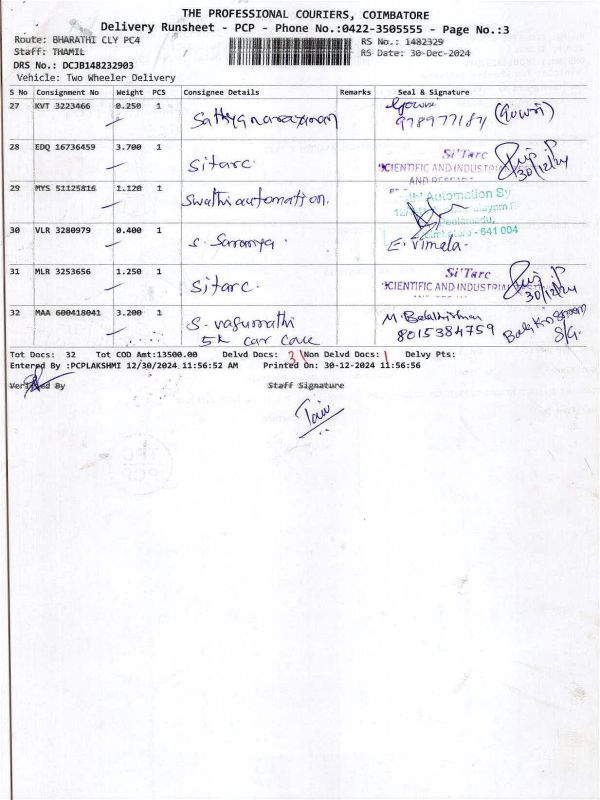 THE PROFESSIONAL COURIERS, COIMBATORE
Delivery Runsheet - PCP - Phone No.:0422-3505555 - Page No.:3
Route: BHARATHI CLY PC4 RS No.: 1482329
Staff: THAMIL RS Date: 30-Dec-2024
DRS No.: DCJB148232903
Vehicle: Two Wheeler Delivery
S No Consignment No Weight PCS Consignee Details Remarks Seal & Signature
27 KVT 3223466 0.250 1 Sathyanarayanan Gowri (Gowri)
9789777187
28 EDQ 16736459 3.700 1 Sitarc. Si'Tarc
SCIENTIFIC AND INDUSTRIAL
AND RESEARCH
30/12/24
29 MYS 51125816 1.120 1 Swathi automation. Automation Sy
Peelamedu,
Coimbatore - 641 004
30 VLR 3280979 0.400 1 S. Saranya. E. Vimala.
31 MLR 3253656 1.250 1 Sitarc. Si'Tarc
SCIENTIFIC AND INDUSTRIAL
30/12/24
32 MAA 600418041 3.200 1 S. vasumathi M. Balakrishnan
5k car care 8015384759
S/G.
Tot Docs: 32 Tot COD Amt:13500.00 Delvd Docs: 31 Non Delvd Docs: 1 Delvy Pts:
Entered By :PCPLAKSHMI 12/30/2024 11:56:52 AM Printed On: 30-12-2024 11:56:56
Verified By Staff Signature